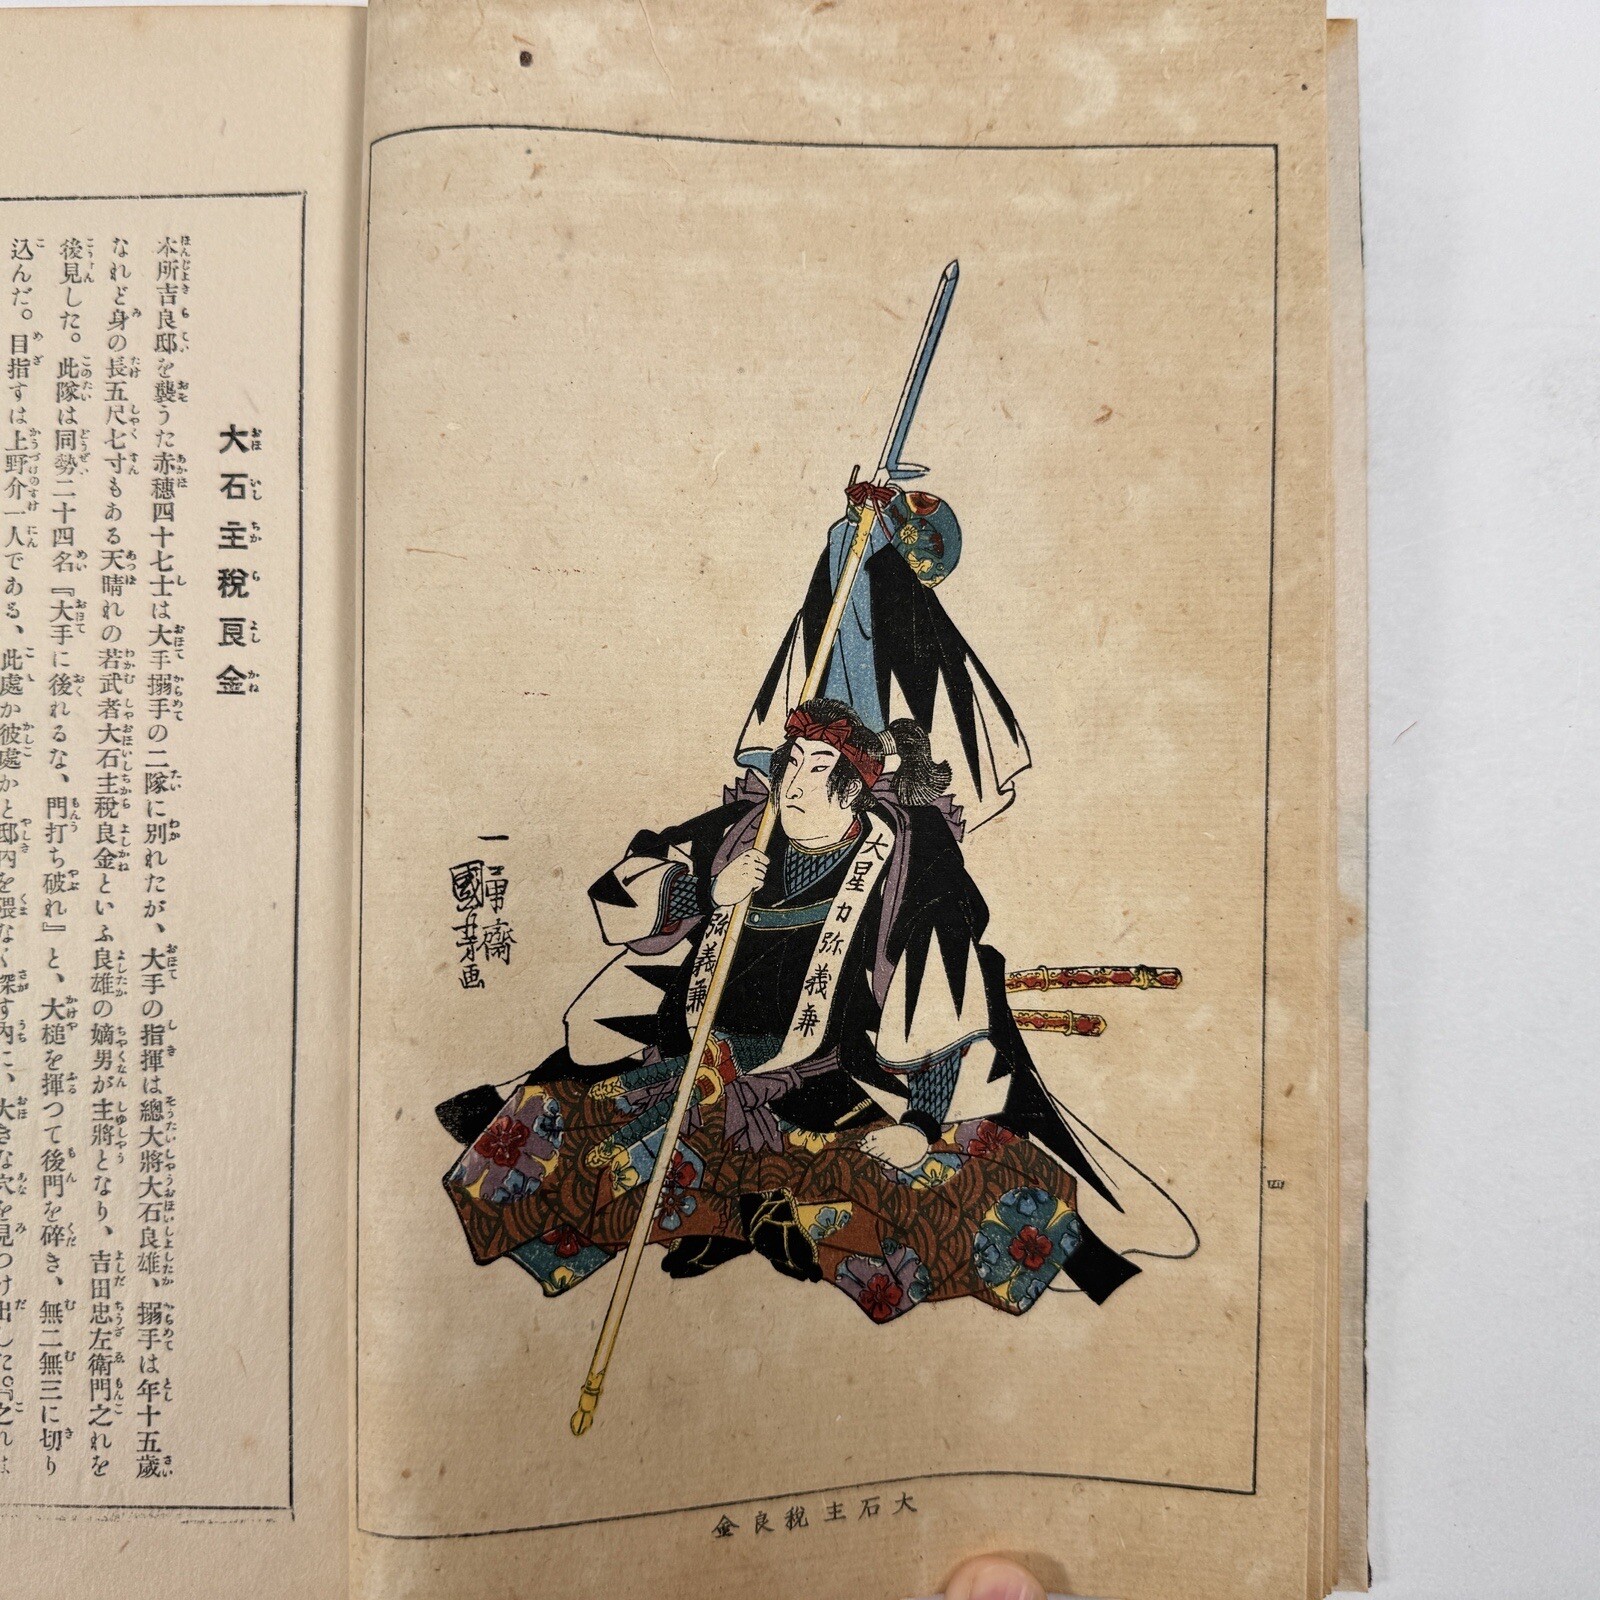 大石主税良金
四
大星力弥義兼
弥義兼
一勇齋
國芳画
大石主税良金
本所吉良邸を襲うた赤穂四十七士は大手搦手の二隊に別れたが、大手の指揮は總大將大石良雄、搦手は年十五歳
なれど身の長五尺七寸もある天晴れの若武者大石主税良金といふ良雄の嫡男が主將となり、吉田忠左衛門之れを
後見した。此隊は同勢二十四名『大手に後れるな、門打ち破れ』と、大槌を揮つて後門を碎き、無二無三に切り
込んだ。目指すは上野介一人である、此處か彼處かと邸内を隈なく探す内に、大きな穴を見つけ出した。『之れは